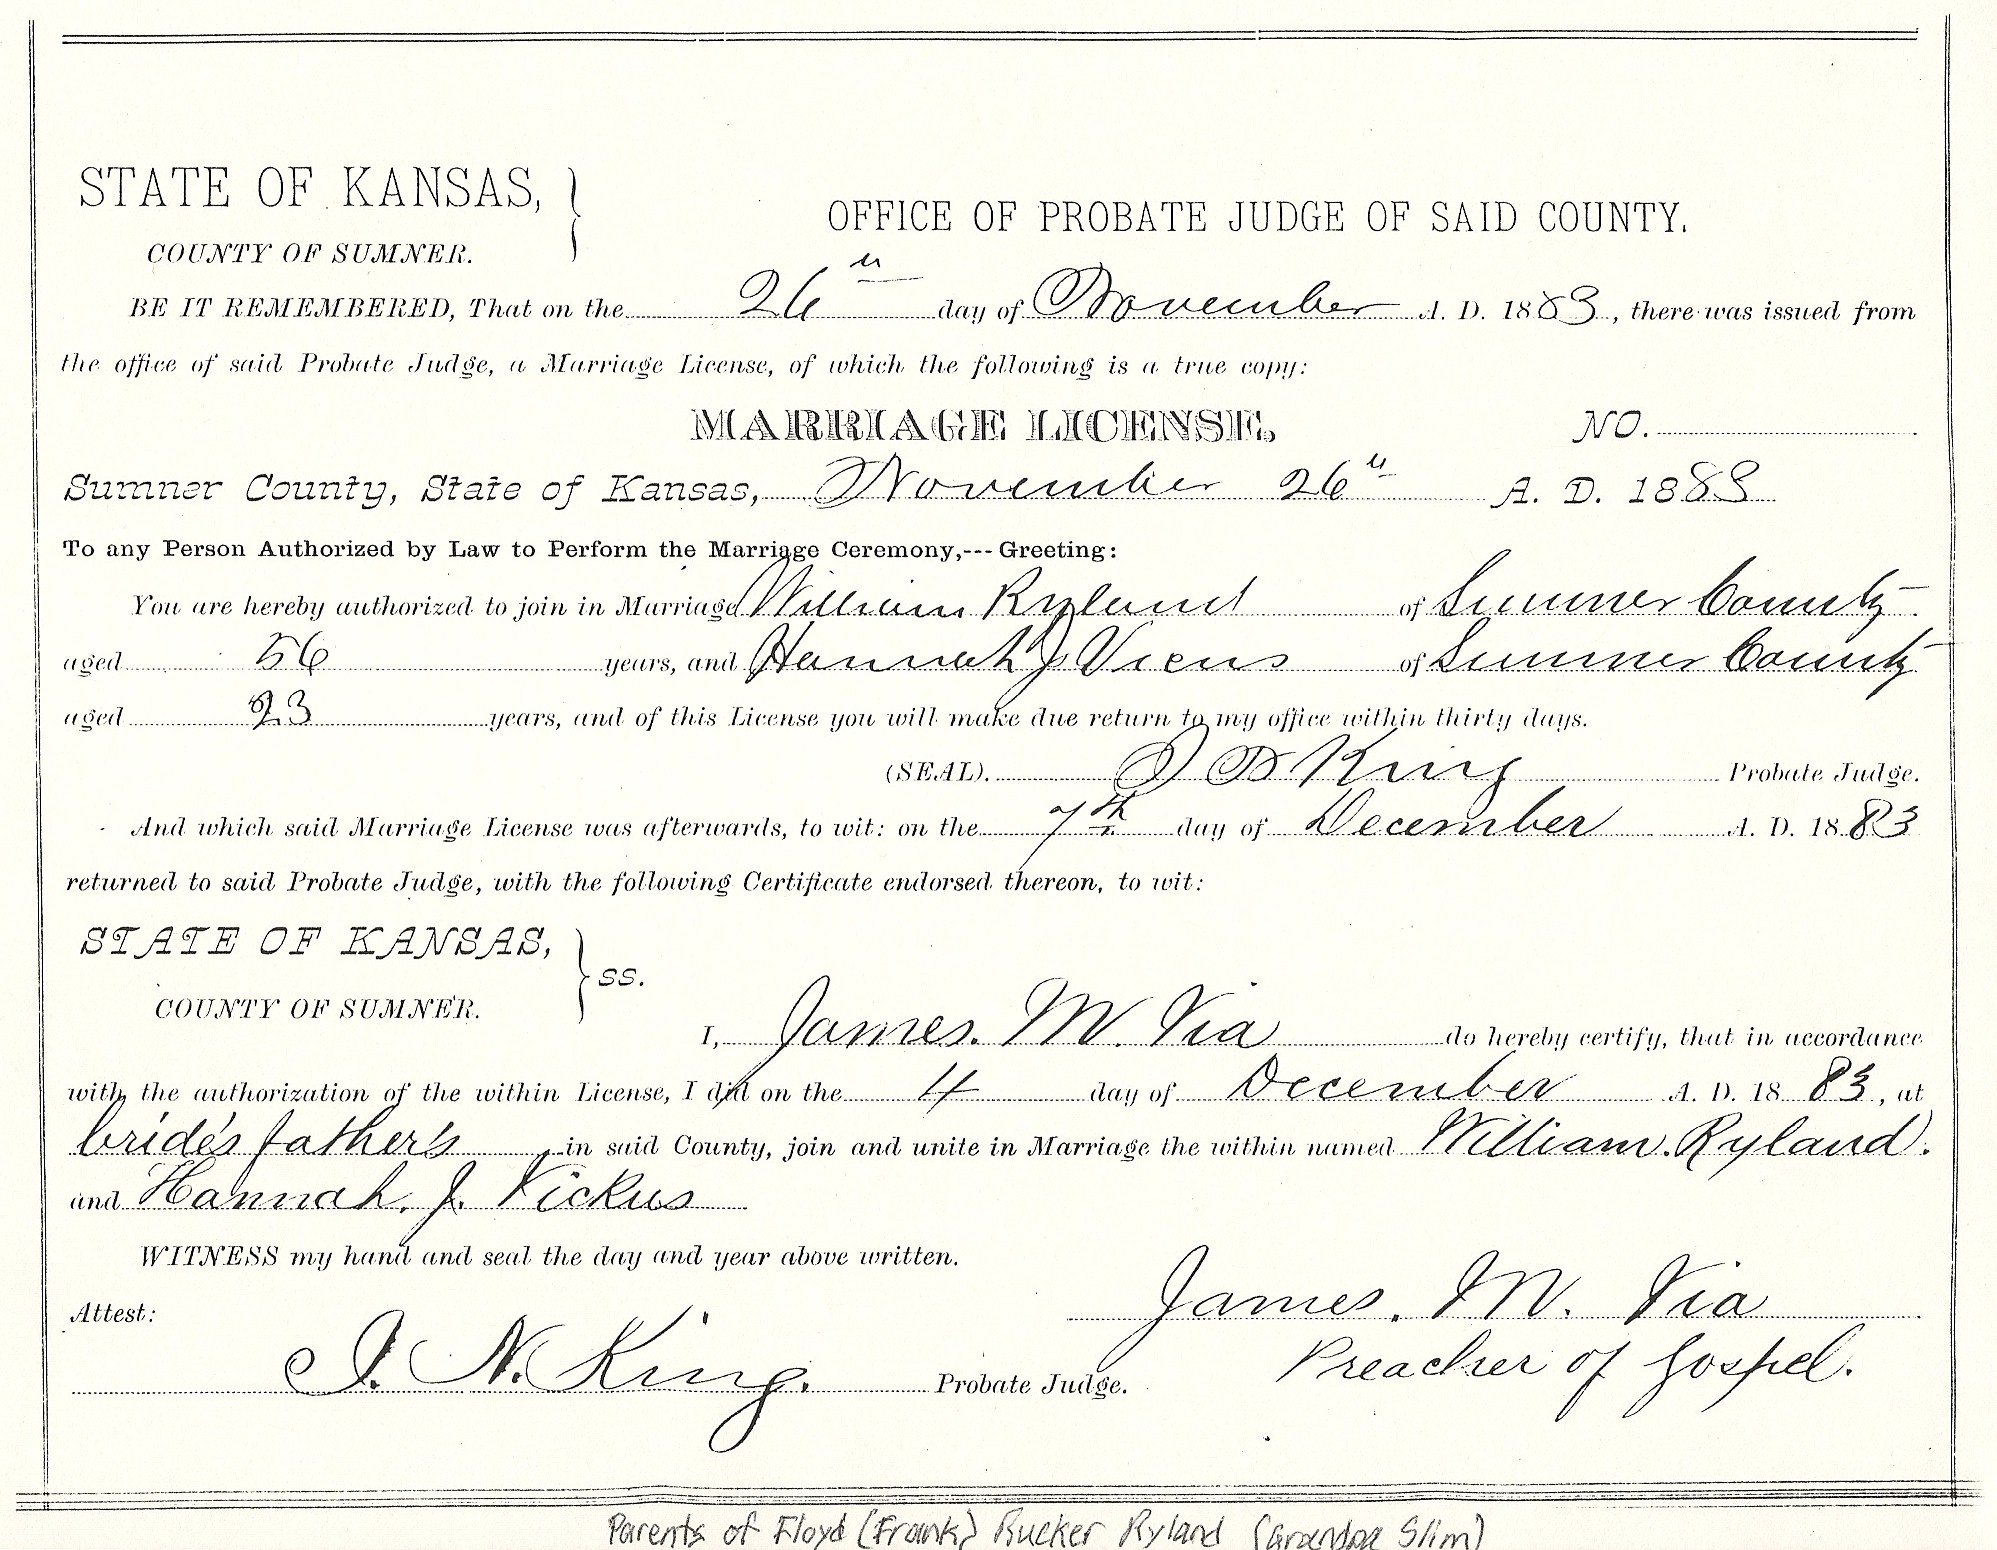 STATE OF KANSAS,
COUNTY OF SUMNER.
OFFICE OF PROBATE JUDGE OF SAID COUNTY.
BE IT REMEMBERED, That on the 26" day of November A. D. 1883, there was issued from
the office of said Probate Judge, a Marriage License, of which the following is a true copy:
MARRIAGE LICENSE. NO.
Sumner County, State of Kansas, November 26" A. D. 1883
To any Person Authorized by Law to Perform the Marriage Ceremony,--- Greeting:
You are hereby authorized to join in Marriage William Ryland of Sumner County
aged 56 years, and Hannah J Viens of Sumner County
aged 23 years, and of this License you will make due return to my office within thirty days.
(SEAL). King Probate Judge.
And which said Marriage License was afterwards, to wit: on the 7th day of December A. D. 1883
returned to said Probate Judge, with the following Certificate endorsed thereon, to wit:
STATE OF KANSAS,
ss.
COUNTY OF SUMNER.
I, James. M. Via do hereby certify, that in accordance
with the authorization of the within License, I did on the 4 day of December A. D. 1883, at
bride's father's in said County, join and unite in Marriage the within named William. Ryland.
and Hannah. J. Vickus
WITNESS my hand and seal the day and year above written.
Attest: James. M. Via
I. N. King. Probate Judge. Preacher of Gospel.
Parents of Floyd (Frank) Rucker Ryland (Grandpa Slim)